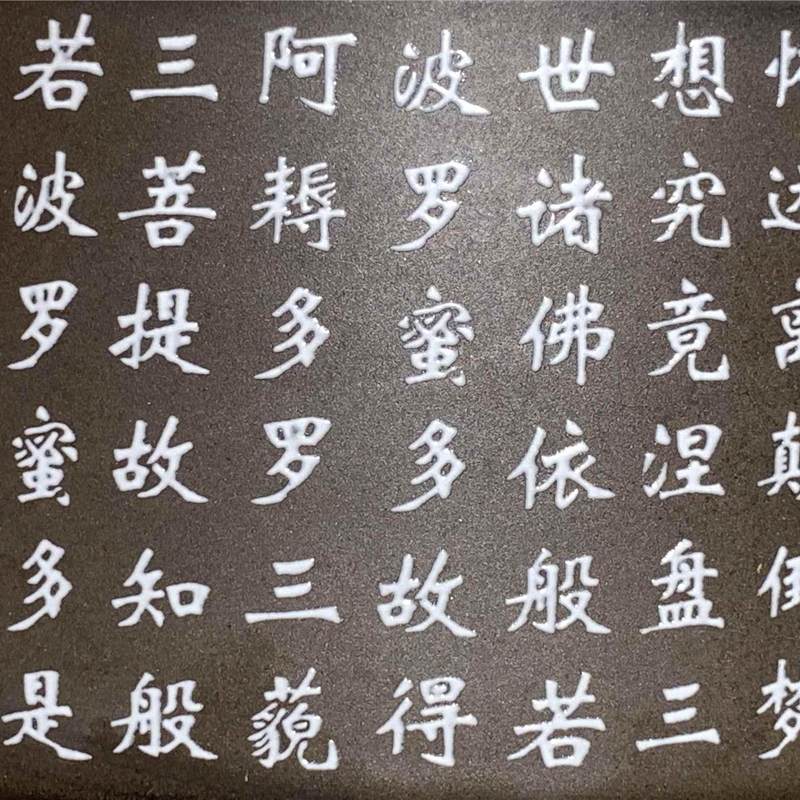 怖远离颠倒梦
想究竟涅盘三
世诸佛依般若
波罗蜜多故得
阿耨多罗三藐
三菩提故知般
若波罗蜜多是